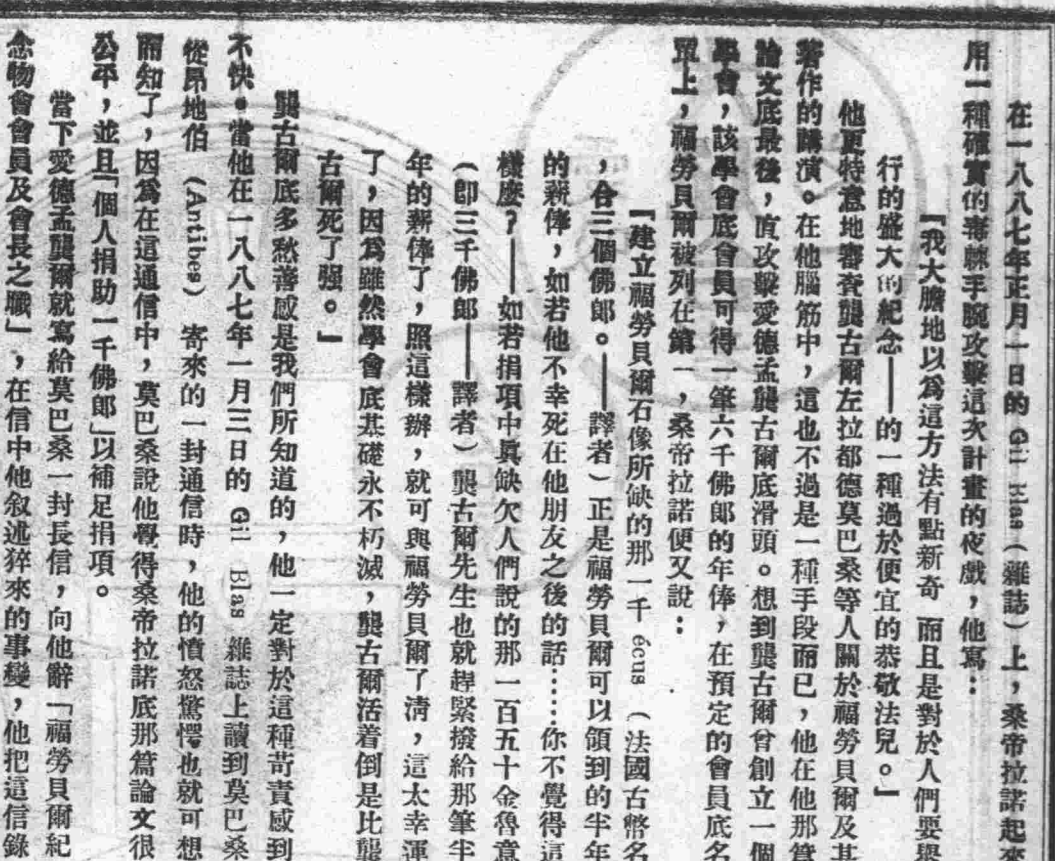 在一八八七年正月一日的 Gil Blas（雜誌）上，桑帝拉諾起來
用一種確實的毒辣手腕攻擊這次計畫的夜戲，他寫：
『我大膽地以爲這方法有點新奇 而且是對於人們要舉
行的盛大的紀念——的一種過於便宜的恭敬法兒。』
他更特意地審查龔古爾左拉都德莫巴桑等人關於福勞貝爾及其
著作的講演。在他腦筋中，這也不過是一種手段而已，他在他那篇
論文底最後，直攻擊愛德孟龔古爾底滑頭。想到龔古爾曾創立一個
學會，該學會底會員可得一筆六千佛郎的年俸，在預定的會員底名
單上，福勞貝爾被列在第一，桑帝拉諾便又說：
『建立福勞貝爾石像所缺的那一千 écus （法國古幣名
，合三個佛郎。——譯者）正是福勞貝爾可以領到的半年
的薪俸，如若他不幸死在他朋友之後的話……你不覺得這
樣麼？——如若捐項中眞缺欠人們說的那一百五十金魯意
（即三千佛郎——譯者）龔古爾先生也就趕緊撥給那筆半
年的薪俸了，照這樣辦，就可與福勞貝爾了淸，這太幸運
了，因爲雖然學會底基礎永不朽滅，龔古爾活着倒是比龔
古爾死了强。』
龔古爾底多愁善感是我們所知道的，他一定對於這種苛責感到
不快。當他在一八八七年一月三日的 Gil Blas 雜誌上讀到莫巴桑
從昂地伯 （Antibes） 寄來的一封通信時，他的憤怒驚愕也就可想
而知了，因爲在這通信中，莫巴桑說他覺得桑帝拉諾底那篇論文很
公平，並且「個人捐助一千佛郎」以補足捐項。
當下愛德孟龔爾就寫給莫巴桑一封長信，向他辭「福勞貝爾紀
念物會會員及會長之職」，在信中他叙述猝來的事變，他把這信錄